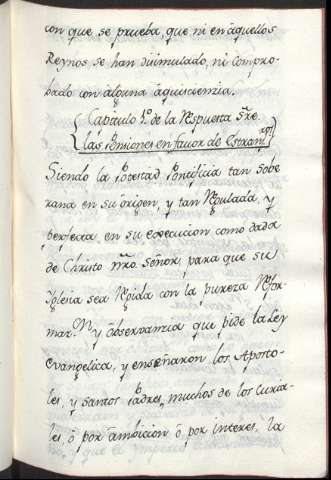 con que se prueba, que ni en aquellos
Reynos se han disimulado, ni compro-
bado con alguna aquiescencia.
Capitulo 1º. de la Respuesta sre.
las Pensiones en favor de Estran
Siendo la Potestad Pontificia tan sobe
rana en su origen, y tan Regulada, y
perfecta, en su execucion como dada
de Christo nro. Señor, para que su
Iglesia sea Regida con la pureza Refor
y observancia que pide la Ley
evangelica, y enseñaron los Aposto-
les, y santos Padres, muchos de los Curia-
les, ó por ambicion ó por interes, la